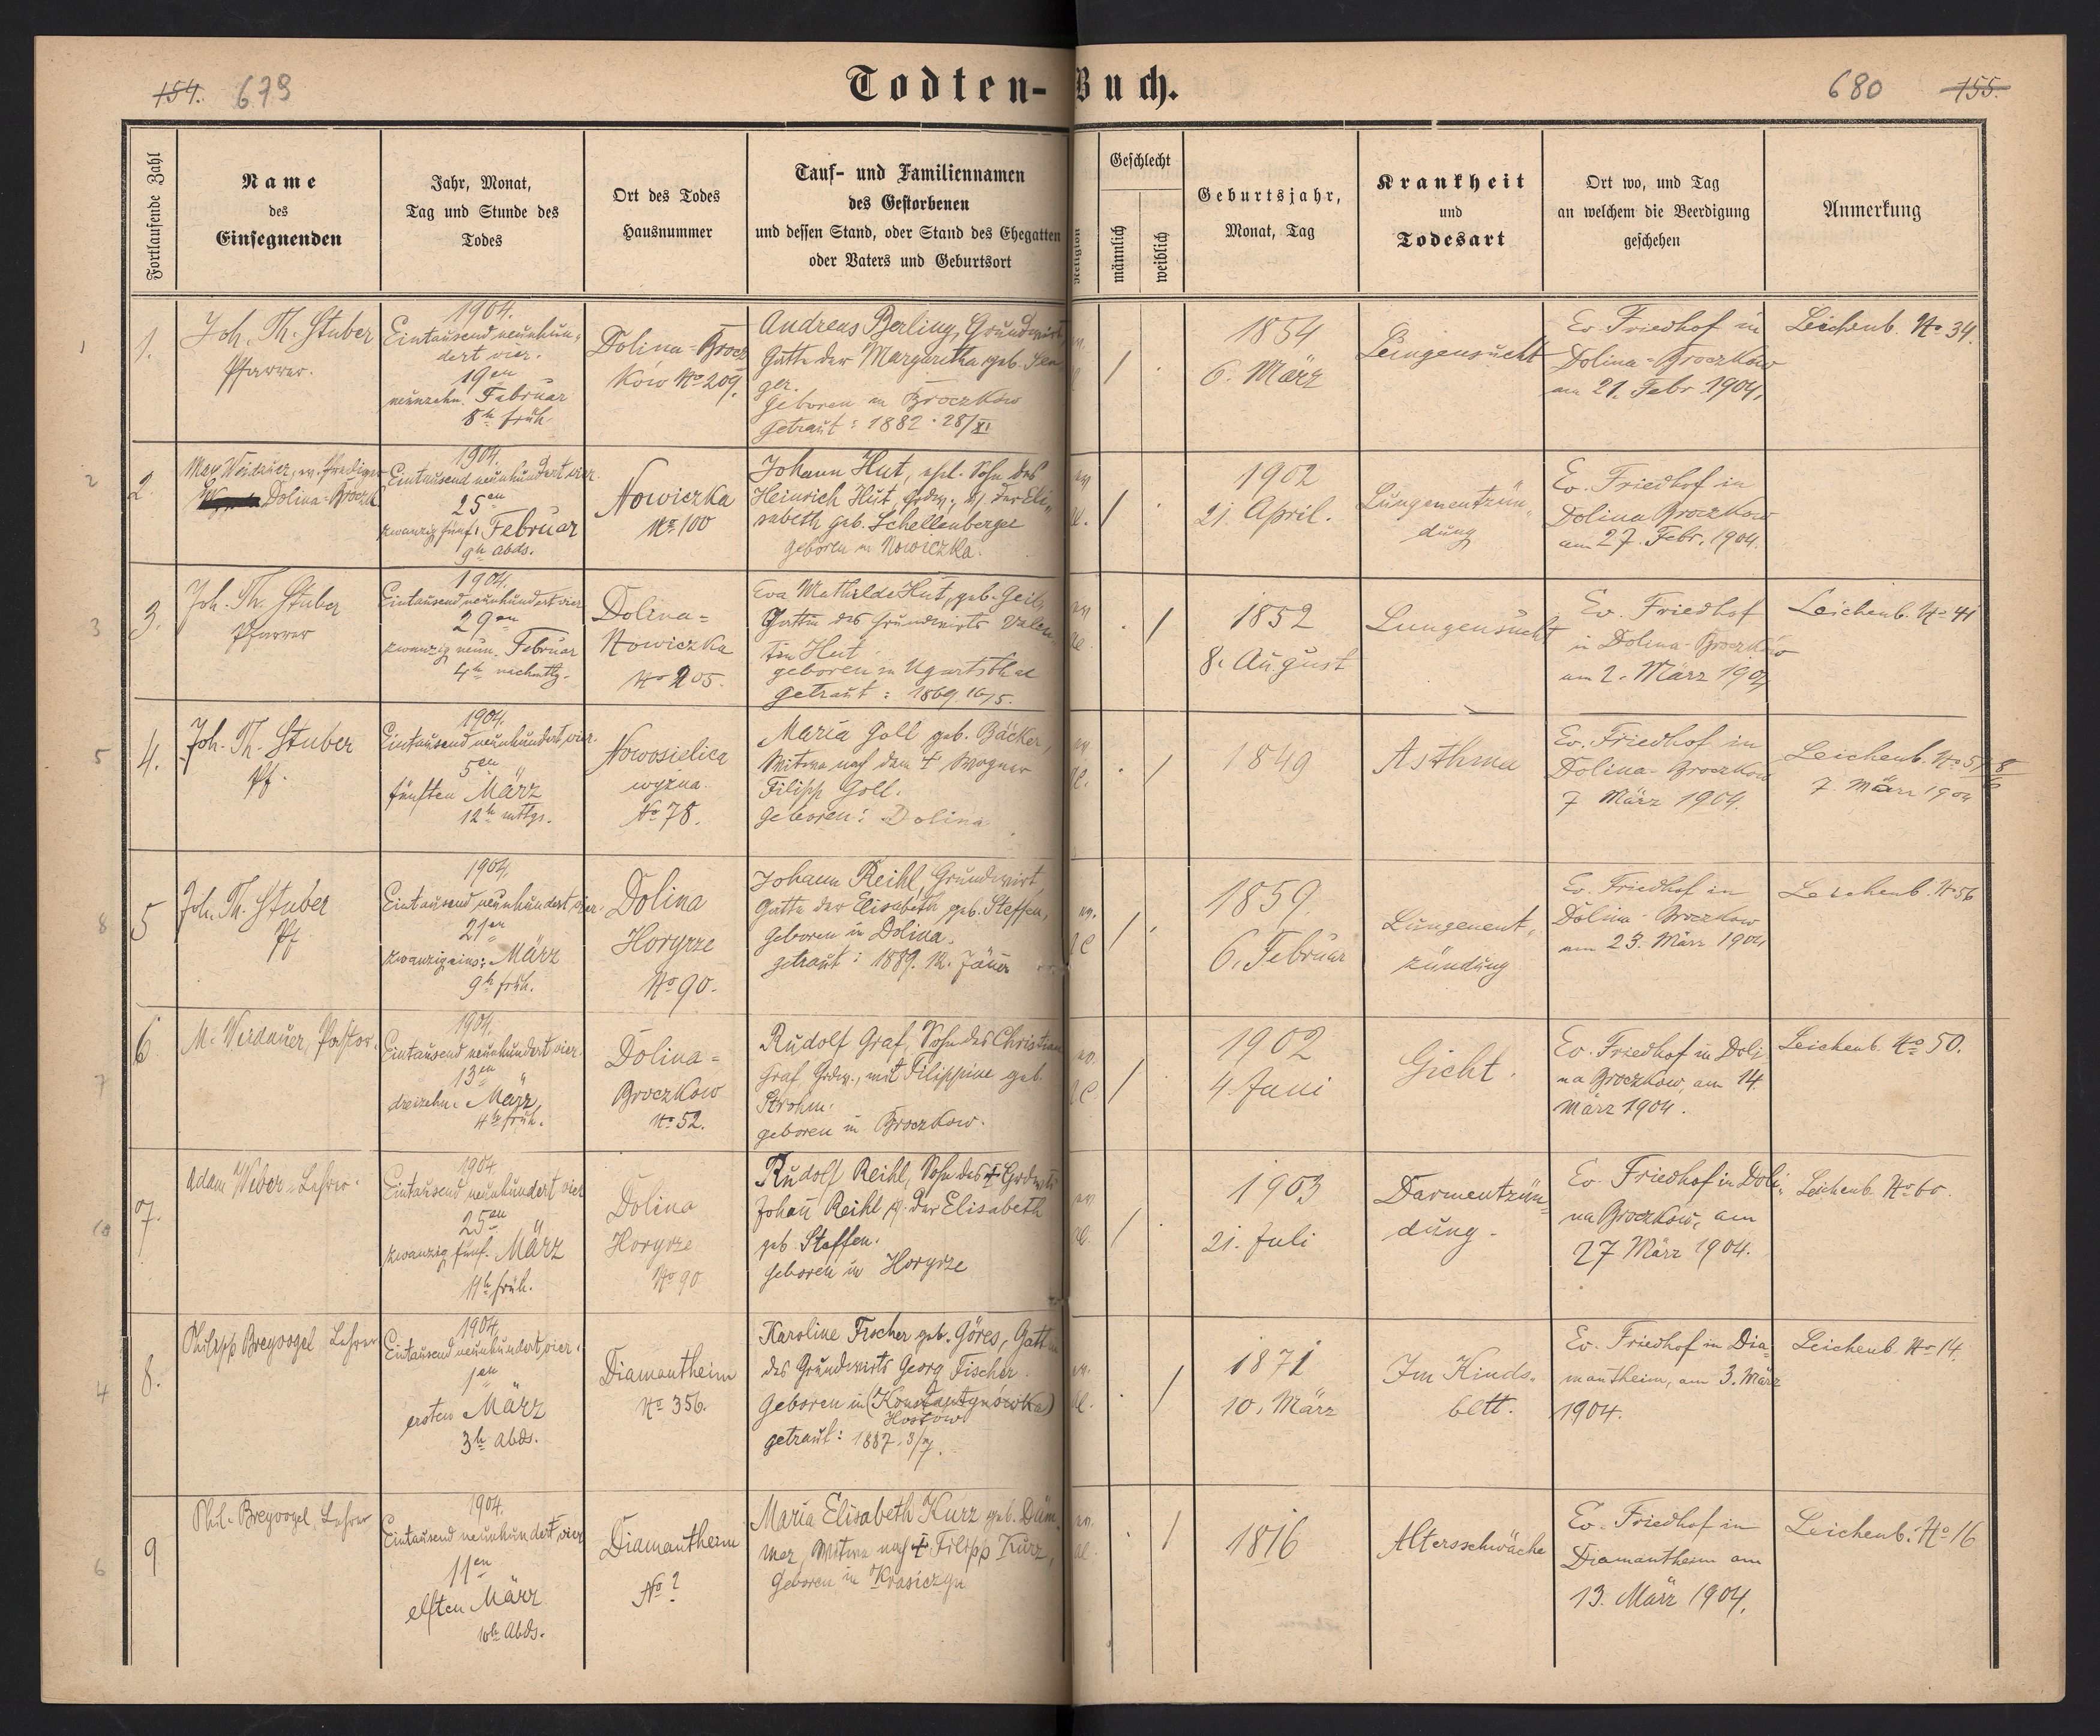 154. 679
Todten-Buch.
680 155.
Fortlaufende Zahl
Name
des
Einsegnenden
Jahr, Monat,
Tag und Stunde des
Todes
Ort des Todes
Hausnummer
Tauf- und Familiennamen
des Gestorbenen
und dessen Stand, oder Stand des Ehegatten
oder Vaters und Geburtsort
Religion
Geschlecht
männlich
weiblich
Geburtsjahr,
Monat, Tag
Krankheit
und
Todesart
Ort wo, und Tag
an welchem die Beerdigung
geschehen
Anmerkung
1
1.
Joh. Th. Stuber
Pfarrer.
1904.
Eintausend neunhun-
dert vier.
19en
neunzehn. Februar
8h früh.
Dolina-Brocz
kow No 209.
Andreas Berling, Grundwirt
Gatte der Margaretha geb.
ger.
Geboren in Broczkow
getraut: 1882. 28/XI.
/ .
1854
6. März
Lungensucht
Ev. Friedhof in
Dolina-Broczkow
am 21. Febr. 1904.
Leichenb. No 34.
2
2
Max Weidauer, ev. Prediger
Dolina-Broczk
1904.
Eintausend neunhundert vier.
25en
zwanzig fünf. Februar
9h abds.
Nowiczka
No 100
Johann Hut, ehel. Sohn des
Heinrich Hut, Grdw., u. der Eli-
sabeth geb. Schellenberger
geboren in Nowiczka.
ev.
/ .
1902
21. April.
Lungenentzün-
dung
Ev. Friedhof in
Dolina Broczkow
am 27. Febr. 1904.
3
3.
Joh. Th. Stuber
Pfarrer
1904.
Eintausend neunhundert vier
29en
zwanzig neun. Februar
4h nachmttg.
Dolina-
Nowiczka
No 205.
Eva Mathilde Hut, geb. Geib,
Gattin des Grundwirts Valen-
tin Hut
geboren in Ugartsthal
getraut: 1869. 16/5.
ev.
. /
1852
8. August
Lungensucht
Ev. Friedhof
in Dolina-Broczków
am 2. März 1904
Leichenb. No 41
5
4.
Joh. Th. Stuber
Pf.
1904.
Eintausend neunhundert vier.
5en
fünften März
12h mttgs.
Nowosielica
wyżna.
No 78.
Maria Goll geb. Bäcker,
Witwe nach dem † Wagner
Filipp Goll.
Geboren: Dolina
ev.
. /
1849
Asthma
Ev. Friedhof in
Dolina-Broczkow
7 März 1904.
Leichenb. No
7. März 1904
8
5
Joh. Th. Stuber
Pf.
1904.
Eintausend neunhundert vier.
21en
zwanzig eins: März
9h früh.
Dolina
Horyrze
No 90.
Johann Reihl, Grundwirt,
Gatte der Elisabeth geb. Steffen,
Geboren in Dolina.
getraut: 1889. 12. Jäner
ev.
/ .
1859.
6. Februar
Lungenent-
zündung
Ev. Friedhof in
Dolina-Broczkow
am 23. März 1904
Leichenb. No 56
7
6
M. Weidauer, Pastor.
1904.
Eintausend neunhundert vier.
13en
dreizehn. März
4h früh.
Dolina-
Broczkow
No 52.
Rudolf Graf, Sohn des Christian
Graf Grdw., mit Filippine geb.
Strohm.
geboren in Broczkow.
ev.
/
1902
4. Juni
Gicht.
Ev. Friedhof in Doli
na Broczkow, am 14.
März 1904.
Leichenb. No 50.
10
7.
Adam Weber, Lehrer.
1904
Eintausend neunhundert vier
25en
zwanzig fünf. März
11h früh.
Dolina
Horyrze
No 90
Rudolf Reihl, Sohn des † Grdwts
Johann Reihl u. der Elisabeth
geb. Steffen.
Geboren in Horyrze
ev
/ .
1903
21. Juli
Darmentzün-
dung.
Ev. Friedhof in Doli-
na Broczkow, am
27 März 1904.
Leichenb. No 60.
4
8.
Philipp Breyvogel, Lehrer
1904.
Eintausend neunhundert vier.
1en
ersten März
3h abds.
Diamantheim
No 356.
Karoline Fischer geb. Göres, Gattin
des Grundwirts Georg Fischer.
Geboren in (Konstantynówka)
Hostow
getraut: 1887. 3/7.
ev.
. /
1871
10. März
Im Kinds-
bett.
Ev. Friedhof in Dia-
mantheim, am 3. März
1904.
Leichenb. No 14.
6
9
Phil. Breyvogel, Lehrer
1904.
Eintausend neunhundert vier
11en
elften März
10h Abds.
Diamantheim
No ?
Maria Elisabeth Kurz geb. Däm-
mer, Witwe nach † Filipp Kurz,
Geboren in Krasiczyn
ev.
. /
1816
Altersschwäche
Ev. Friedhof in
Diamantheim am
13. März 1904.
Leichenb. No 16